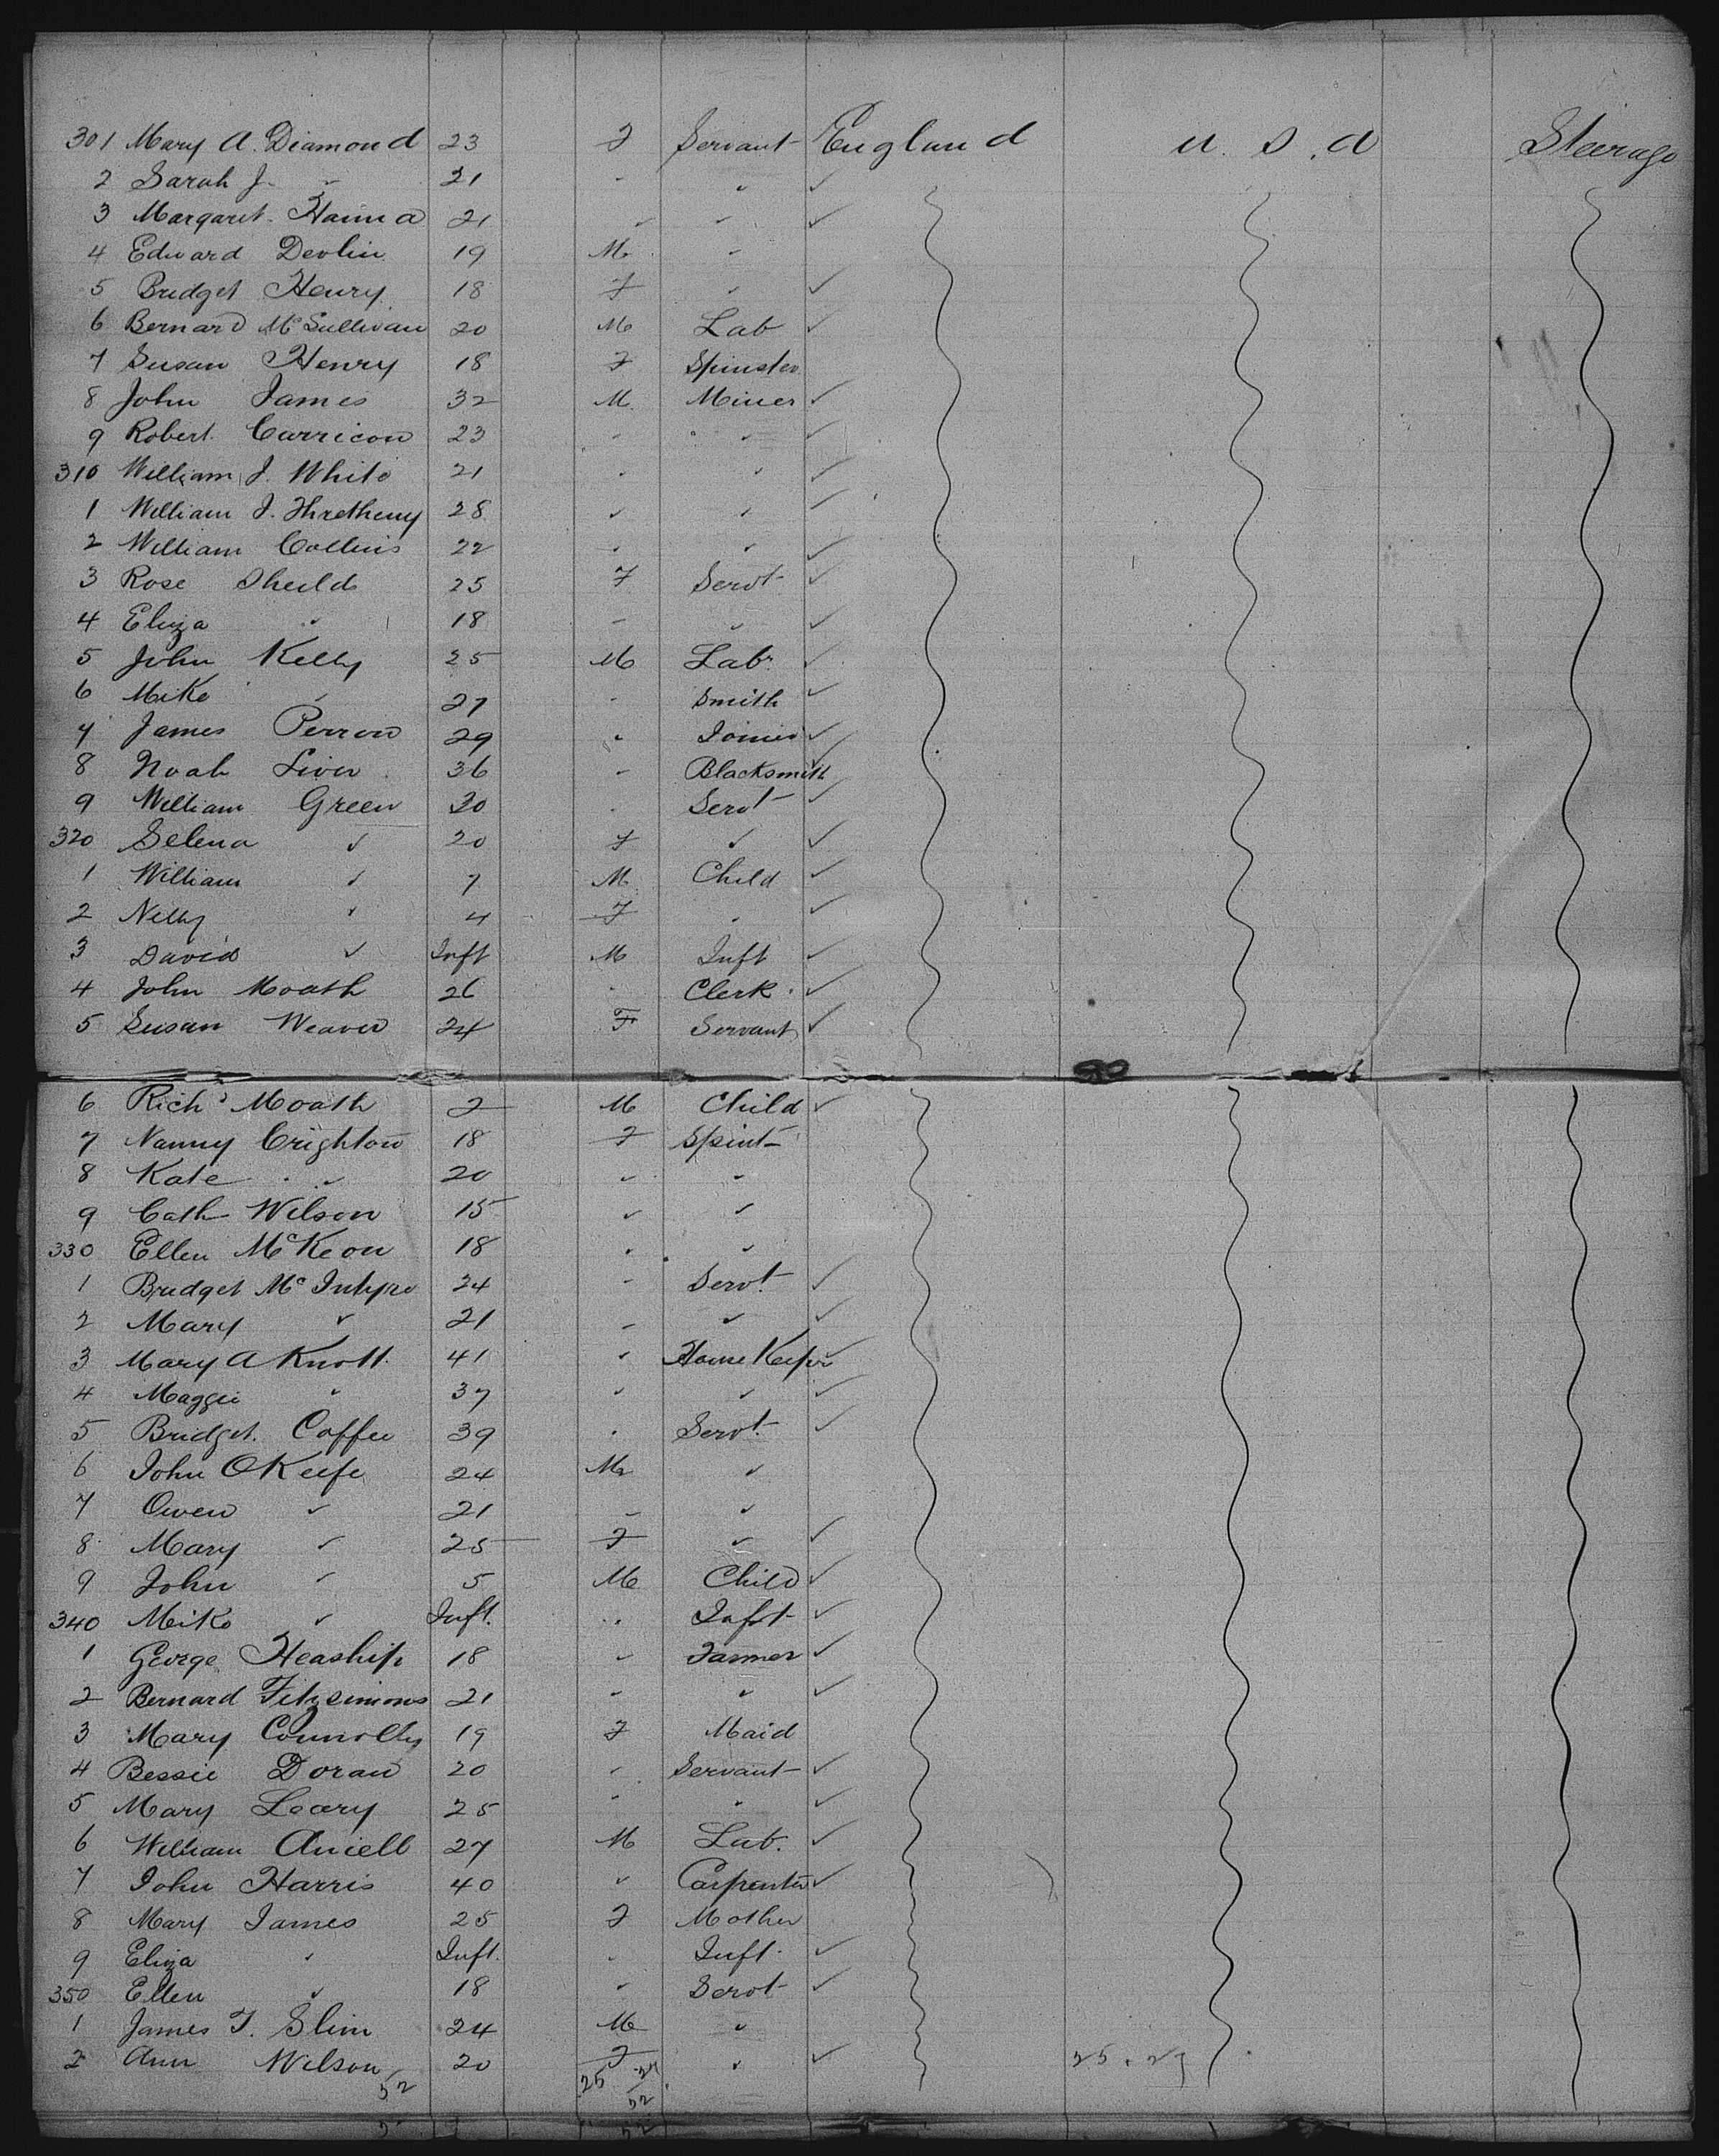 301 Mary A. Diamond 23 F Servant England U.S.A Steerage
2 Sarah J. " 21 " " ✓
3 Margaret Hanna 21 " " ✓
4 Edward Devlin 19 M "
5 Bridget Henry 18 F " ✓
6 Bernard McSullivan 20 M Lab ✓
7 Susan Henry 18 F Spinster
8 John James 32 M Miner ✓
9 Robert Carricon 23 " " ✓
310 William J. White 21 " " ✓
1 William J. 28 " " ✓
2 William Collins 22 " " ✓
3 Rose Sheild 25 F Servt ✓
4 Eliza " 18 " " ✓
5 John Kelly 25 M Labr ✓
6 Mike " 27 " Smith ✓
7 James Perron 29 " Joiner ✓
8 Noah Liver 36 " Blacksmith ✓
9 William Green 30 " Servt ✓
320 Selena " 20 F " ✓
1 William " 7 M Child ✓
2 Nelly " 4 F " ✓
3 David " Inft M Inft ✓
4 John Moath 26 " Clerk ✓
5 Susan Weaver 24 F Servant ✓
6 Richd Moath 2 M Child ✓
7 Nanny Crighton 18 F Spinst
8 Kate " 20 " "
9 Cath Wilson 15 " "
330 Ellen McKeon 18 " "
1 Bridget McIntyre 24 " Servt ✓
2 Mary " 21 " " ✓
3 Mary A Knott 41 " HouseKeeper ✓
4 Maggie " 37 " " ✓
5 Bridget Coffee 39 " Servt ✓
6 John OKeefe 24 M "
7 Owen " 21 " "
8 Mary " 25 F " ✓
9 John " 5 M Child ✓
340 Mike " Inft. " Inft ✓
1 George Heaship 18 " Farmer ✓
2 Bernard Fitzsimons 21 " " ✓
3 Mary Connolly 19 F Maid
4 Bessie Doran 20 " Servant ✓
5 Mary Leary 25 " " ✓
6 William 27 M Lab. ✓
7 John Harris 40 " Carpenter ✓
8 Mary James 25 F Mother
9 Eliza " Inft. " Inft. ✓
350 Ellen " 18 " Servt ✓
1 James T. Slim 24 M "
2 Ann Wilson 20 F " ✓
52 25 27 25.27
52
52